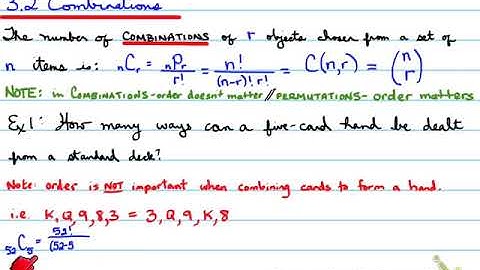 3.2 Combinations
The number of COMBINATIONS of r objects chosen from a set of
n items is: nCr = nPr/r! = n!/(n-r)! r! = C(n,r) = (n r)
NOTE: in COMBINATIONS-order doesn't matter//PERMUTATIONS- order matters
Ex1: How many ways can a five-card hand be dealt
from a standard deck?
Note: order is NOT important when combining cards to form a hand.
i.e. K,Q,9,8,3 = 3,Q,9,K,8
52C5 = 52!/(52-5